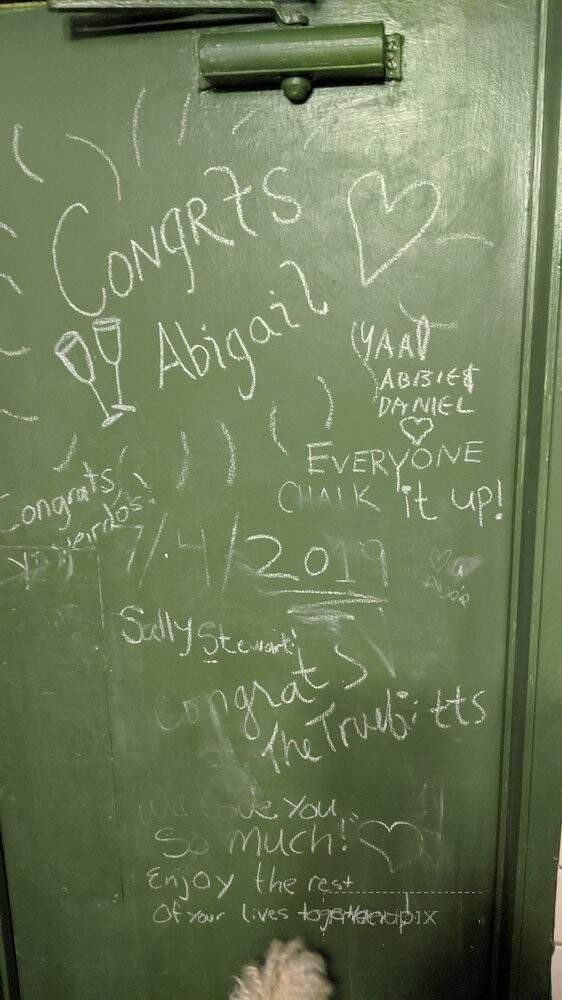 CONGRTS
Abigail
YAAY
ABBIE &
DANIEL
EVERYONE
CHALK it up!
Congrats,
weirdos!
7/4/2019
Sally Stewart!
Congrats
The Truebitts
We love you
So much!
Enjoy the rest
Of your lives together!